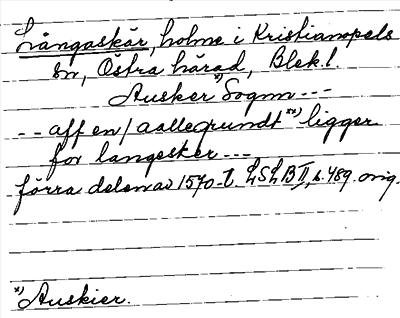 Långaskär, holme i Kristianopels
sn, Östra härad, Blek.l.
Ausker x) Sognn ---
-- aff en / aallegrundt xx) ligger
for langesker ---
förra delen av 1570-t. LSLB II, s. 489. orig.
x) Auskier.